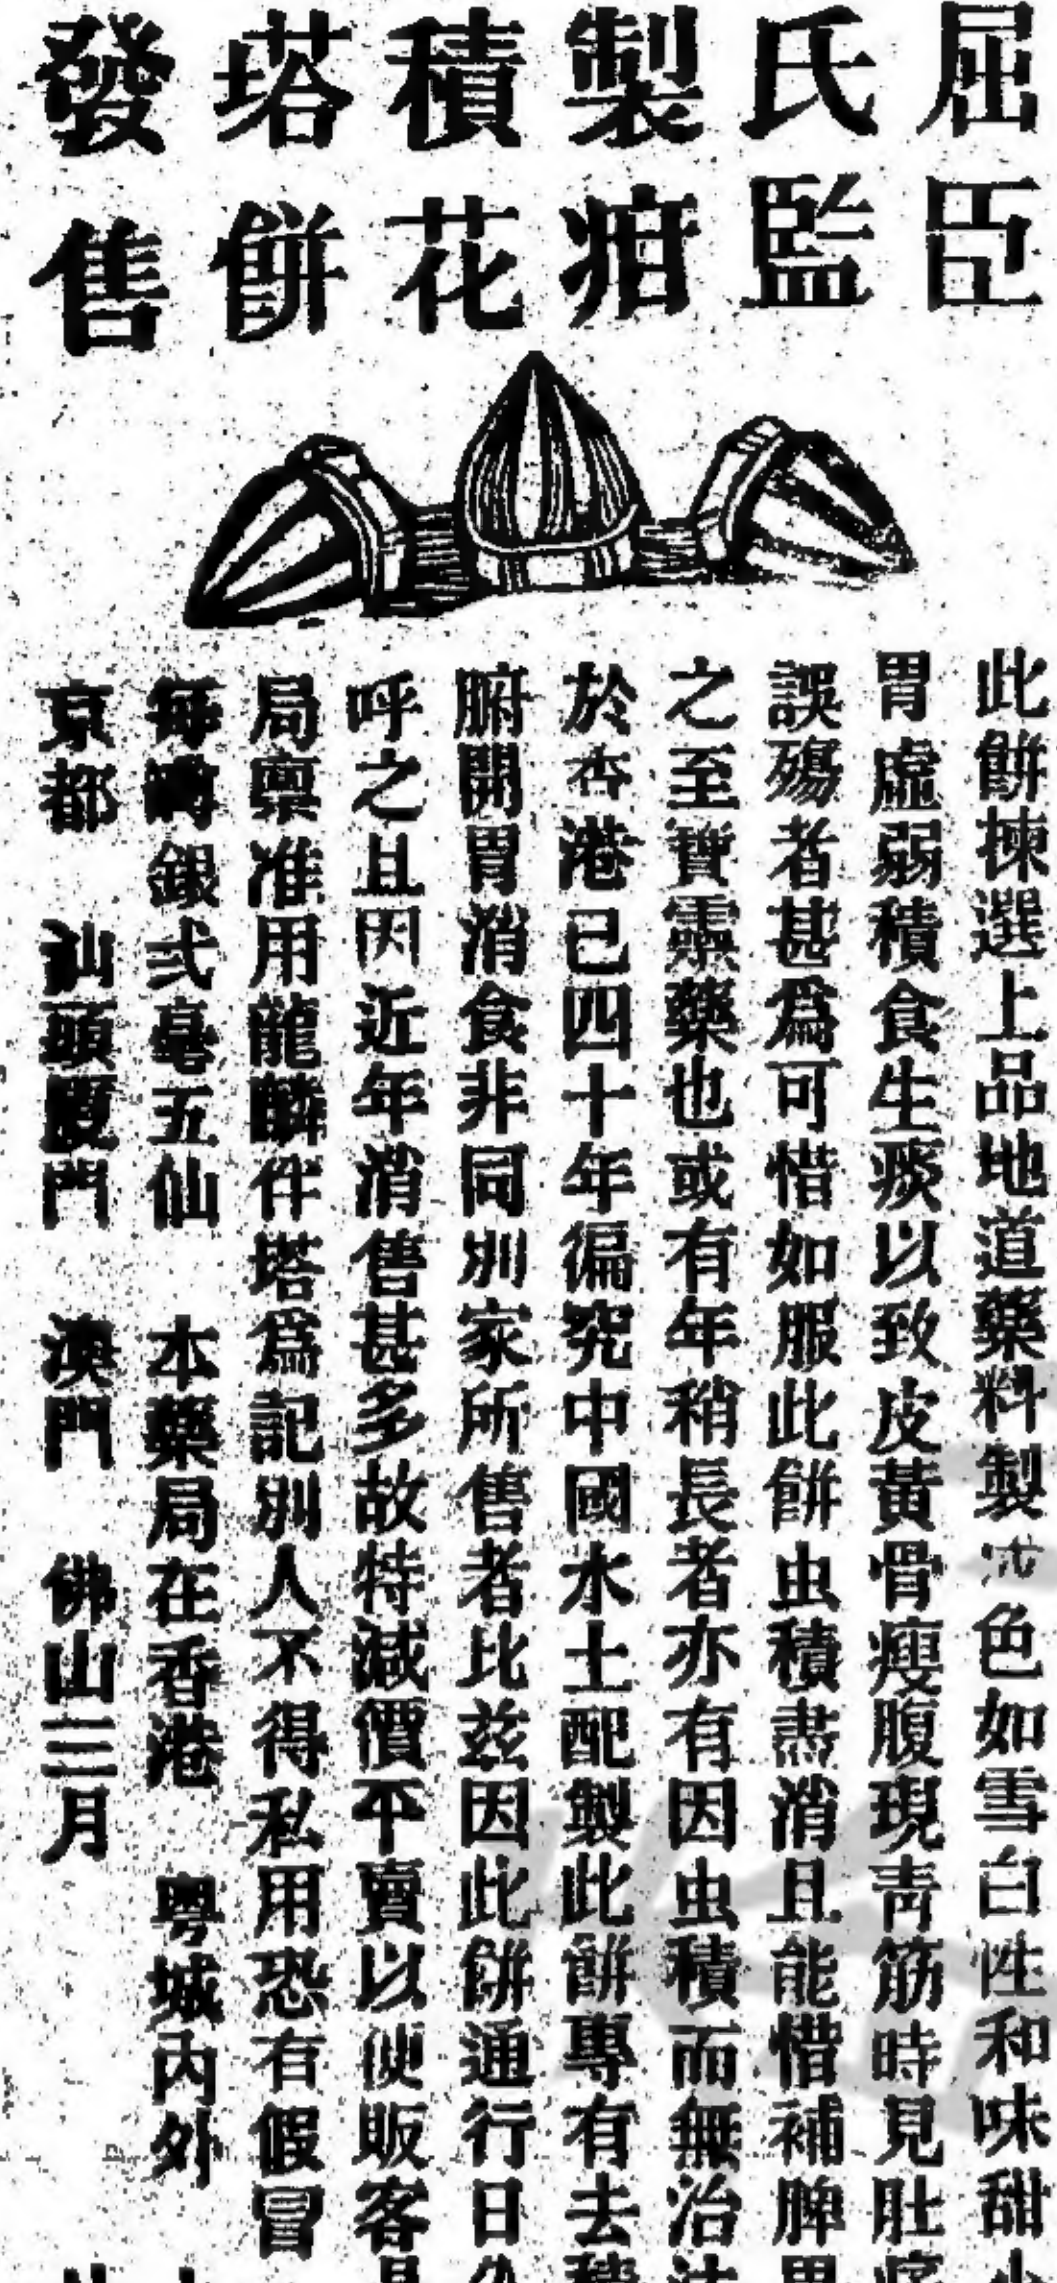 屈臣
氏監
製疳
積花
塔餅
發售
此餅揀選上品地道藥料製成色如雪白性和味甜
胃虛弱積食生痰以致皮黃骨瘦腹現青筋時見肚痛
誤殤者甚爲可惜如服此餅虫積盡消且能惜補脾胃
之至寶靈藥也或有年稍長者亦有因虫積而無治法
於香港已四十年徧究中國水土配製此餅專有去積
腑開胃消食非同別家所售者比茲因此餅通行日久
呼之且因近年消售甚多故特減價平賣以便販客
局稟准用龍麟伴塔爲記別人不得私用恐有假冒
每 銀弍毫五仙 本藥局在香港 粵城內外
京都 汕頭廈門 澳門 佛山 三月